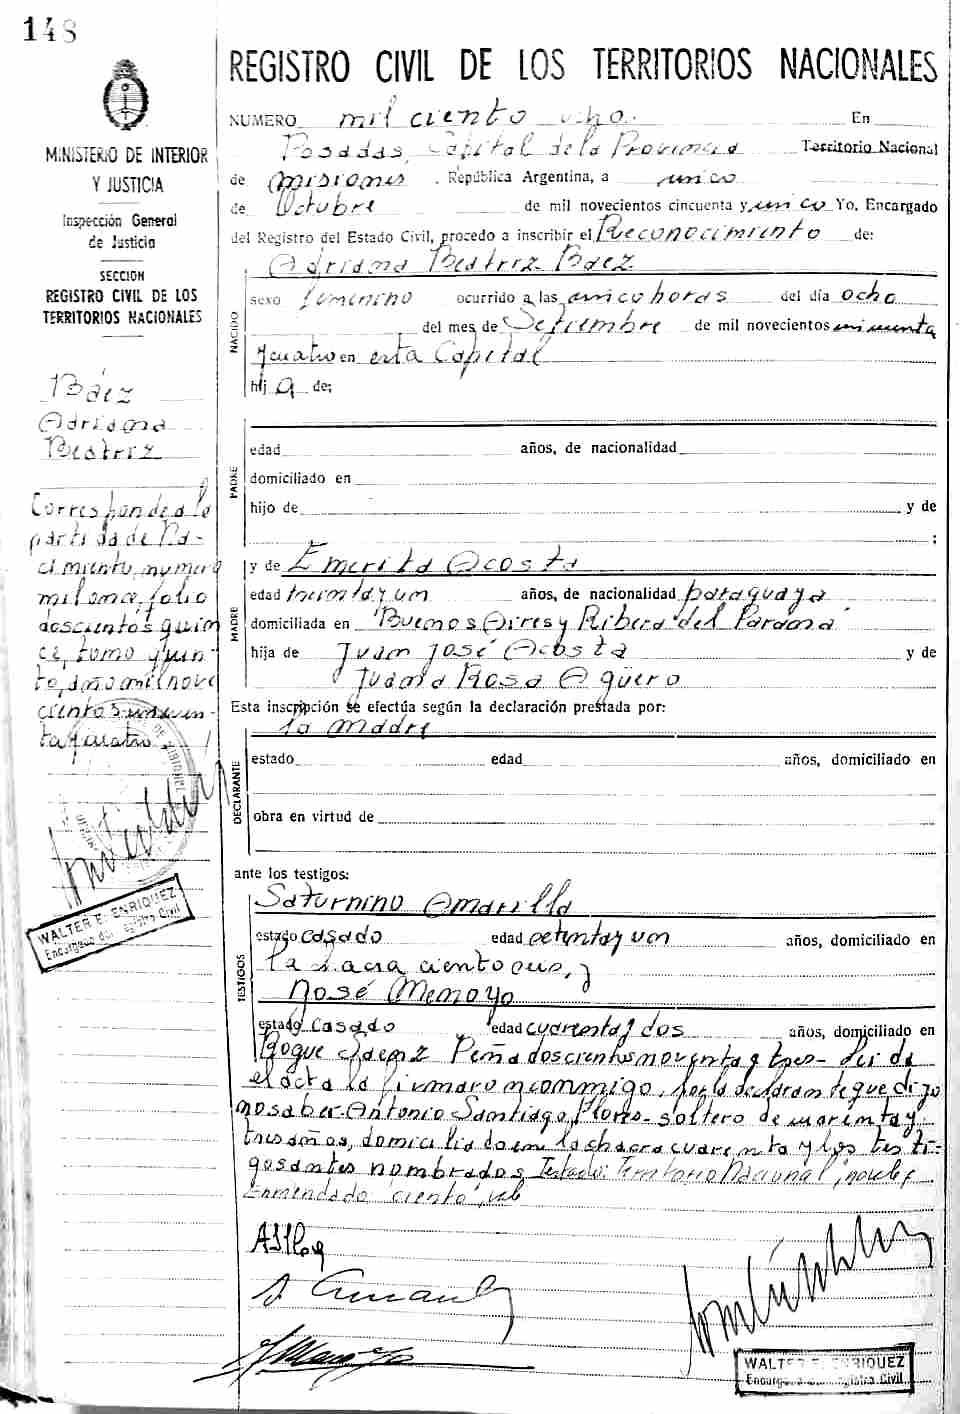 148
REGISTRO CIVIL DE LOS TERRITORIOS NACIONALES
MINISTERIO DE INTERIOR
Y JUSTICIA
Inspección General
de Justicia
SECCION
REGISTRO CIVIL DE LOS
TERRITORIOS NACIONALES
Báez
Adriana
Beatriz
Corresponde a la
partida de Na-
cimiento, numero
mil once, folio
doscientos quin
ce, tomo quin-
to, año mil nove
cientos cincuen-
ta y cuatro.
WALTER E. ENRIQUEZ
Encargado del Registro Civil
NUMERO mil ciento ocho. En
Posadas, Capital de la Provincia Territorio Nacional
de Misiones. República Argentina, a cinco
de Octubre de mil novecientos cincuenta y cinco Yo, Encargado
del Registro del Estado Civil, procedo a inscribir el Reconocimiento de:
Adriana Beatriz Baez
NACIDO
sexo femenino ocurrido a las cinco horas del día ocho
del mes de Setiembre de mil novecientos cincuenta
y cuatro en esta Capital
hij a de:
PADRE
edad años, de nacionalidad
domiciliado en
hijo de y de
;
MADRE
y de Emerita Acosta
edad treinta y un años, de nacionalidad paraguaya
domiciliada en Buenos Aires y Ribera del Paraná
hija de Juan José Acosta y de
Juana Rosa Agüero
Esta inscripción se efectúa según la declaración prestada por:
la madre
DECLARANTE
estado edad años, domiciliado en
obra en virtud de
ante los testigos:
TESTIGOS
Saturnino Amarilla
estado casado edad setenta y un años, domiciliado en
la chacra ciento seis, y
José Menoyo
estado casado edad cuarenta y dos años, domiciliado en
Roque Saenz Peña doscientos noventa y tres- Leida
el acta la firmaron conmigo, por la declarante que dijo
no saber- Antonio Santiago Flores- soltero de cuarenta y
tres años, domiciliado en la chacra cuarenta y los testi-
gos antes nombrados. Testado: Territorio Nacional, no vale y
Enmendado ciento, vale
WALTER E. ENRIQUEZ
Encargado del Registro Civil